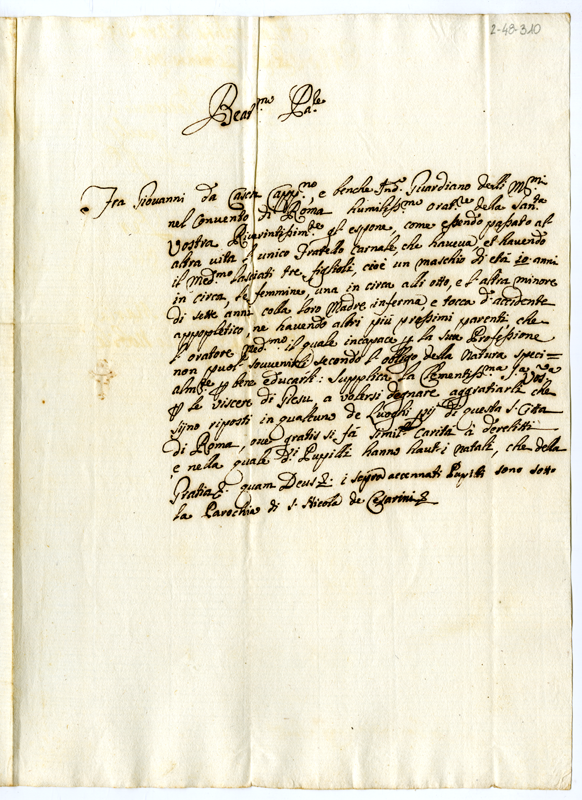 2-48-310
Beat.mo P.re
Fra Giovanni da Cascia Capp.no, e benche Ind.o Guardiano delli M.ri
nel Convento di Roma humilliss.mo orat.re della San.ta
Vostra Riverintissim.te gl'espone, come essendo passato al
altra vita l'unico Fratello carnale, che haveva, et havendo
il med.mo lasciati tre figlioli, cioè un maschio di età 10 anni
in circa, le femmine, una in circa alli otto, e l'altra minore
di sette anni colla loro Madre inferma e tocca d'accidente
appopletico ne havendo altri più prossimi parenti che
l'oratore med.mo il quale incapace p la sua Professione
non puol souvenirli secondo l'obligo della Natura speci=
alm.te p bene educarli: supplica la Clementiss.ma S.tà Vost.
p le viscere di Giesu a volersi degnare aggratiarli che
sijno riposti in qualcuno de Luoghi pij di questa S. Città
di Roma, ove gratis si fà simil Carita à derelitti
e nella quale d.i Pupilli hanno hauti i natali, che della
Gratia &. quam Deus &: i sop.a accennati Pupilli sono sotto
la Parochia di S. Nicola de Cesarini &